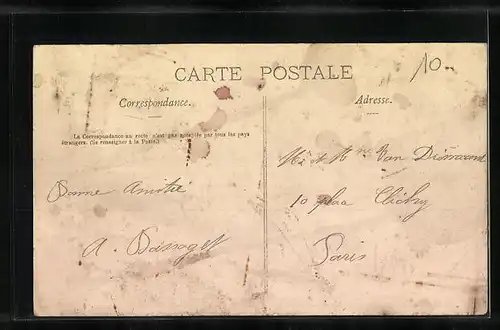 10
CARTE POSTALE
Correspondance.
Adresse.
La Correspondance au recto n'est pas acceptée par tous les pays
étrangers. (Se renseigner à la Poste)
Mr et Mme Van
Bonne Amitié
10 place Clichy
A.
Paris